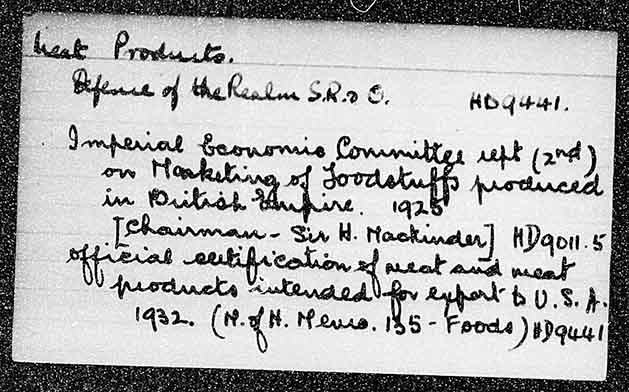 Meat Products.
Defence of the Realm S.R. & O. HD9441.
Imperial Economic Committee rept (2nd)
on Marketing of Foodstuffs produced
in British Empire. 1925
[Chairman - Sir H. Mackinder] HD9011.5
official certification of meat and meat
products intended for export to U.S.A.
1932. (M. of H. Memo. 135 - Foods) HD9441